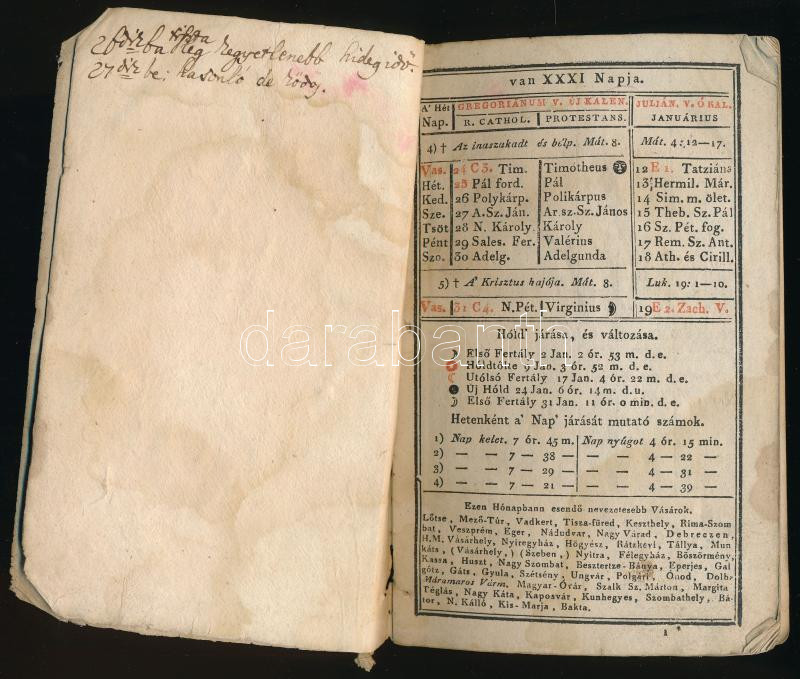 26dikba tiszta
leg kegyetlenebb hideg idő.
27dikbe; hasonló de ködg.
van XXXI Napja.
A' Hét GREGORIÁNUM V. ÚJ KALEN. JULJÁN. V. Ó KAL.
Nap. R. CATHOL. PROTESTANS. JANUÁRIUS
4) † Az inaszakadt és bélp. Mát. 8. Mát. 4: 12—17.
Vas. 24 C 3. Tim. Timotheus 12 E 1. Tatziána
Hét. 25 Pál ford. Pál 13 Hermil. Már.
Ked. 26 Polykárp. Polikárpus 14 Sim. m. ölet.
Sze. 27 A. Sz. Ján. Ar. sz. Sz. János 15 Theb. Sz. Pál
Tsöt 28 N. Károly. Károly 16 Sz. Pét. fog.
Pént 29 Sales. Fer. Valérius 17 Rem. Sz. Ant.
Szo. 30 Adelg. Adelgunda 18 Ath. és Cirill.
5) † A' Krisztus hajója. Mát. 8. Luk. 19: 1—10.
Vas. 31 C 4. N. Pét. Virginius 19 E 2. Zach. V.
Hóld' járása, és változása.
Első Fertály 2 Jan. 2 ór. 53 m. d. e.
Hóldtölte 9 Jan. 3 ór. 52 m. d. e.
Utólsó Fertály 17 Jan. 4 ór. 22 m. d. e.
Uj Hóld 24 Jan. 6 ór. 14 m. d. u.
Első Fertály 31 Jan. 11 ór. 0 min. d. e.
Hetenként a' Nap' járását mutató számok.
1) Nap kelet. 7 ór. 45 m. Nap nyúgot 4 ór. 15 min.
2) — — 7 — 38 — — — 4 — 22 —
3) — — 7 — 29 — — — 4 — 31 —
4) — — 7 — 21 — — — 4 — 39 —
Ezen Hónapbann esendő nevezetesebb Vásárok.
Lőtse, Mező-Túr, Vadkert, Tisza-füred, Keszthely, Rima-Szom
bat, Veszprém, Eger, Nádudvar, Nagy Várad, Debreczen,
H.M. Vásárhely, Nyiregyház, Högyész, Rátzkevi, Tállya, Mun
káts, (Vásárhely,) (Szeben,) Nyitra, Félegyház, Böszörmény,
Kassa, Huszt, Nagy Szombat, Besztertze-Bánya, Eperjes, Gal
gótz, Gáts, Gyula, Szétsény, Ungvár, Polgári, Ónod, Dolb
Máramaros Várm. Magyar-Óvár, Szalk Sz. Márton, Margita
Téglás, Nagy Káta, Kaposvár, Kunhegyes, Szombathely, Bá-
tor, N. Kálló, Kis-Marja, Bakta.
1 *
darabanth